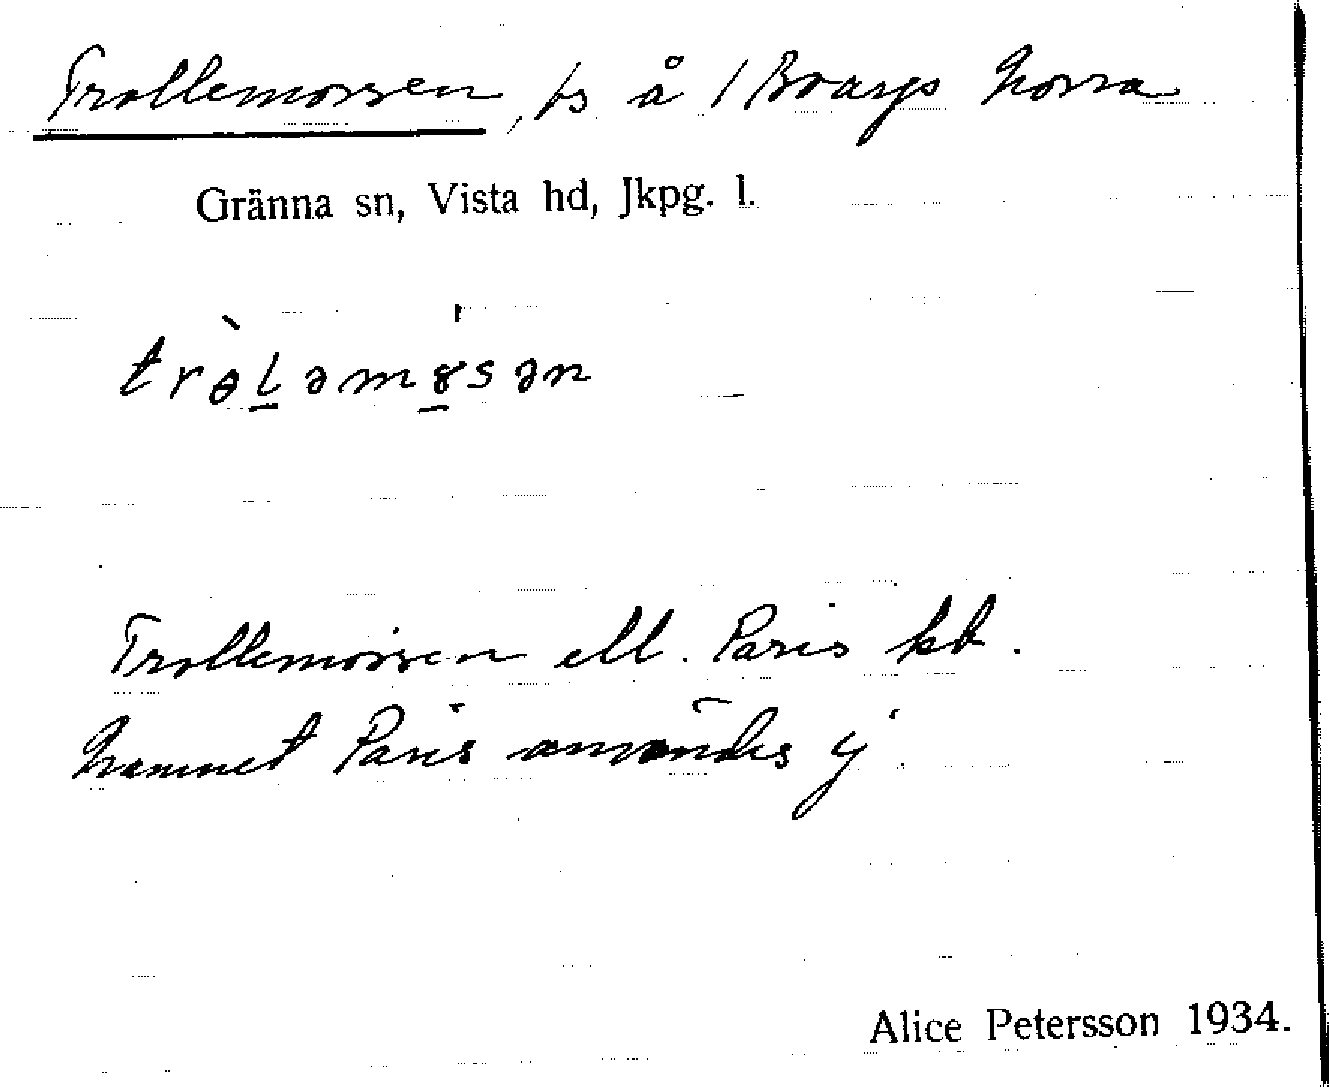 Trollemossen, ps å 1 Boarps Norra
Gränna sn, Vista hd, Jkpg. l.
trɵ̀l̠əmɤ̠sən
Trollemossen ell. Paris kt.
Namnet Paris användes ej.
Alice Petersson 1934.